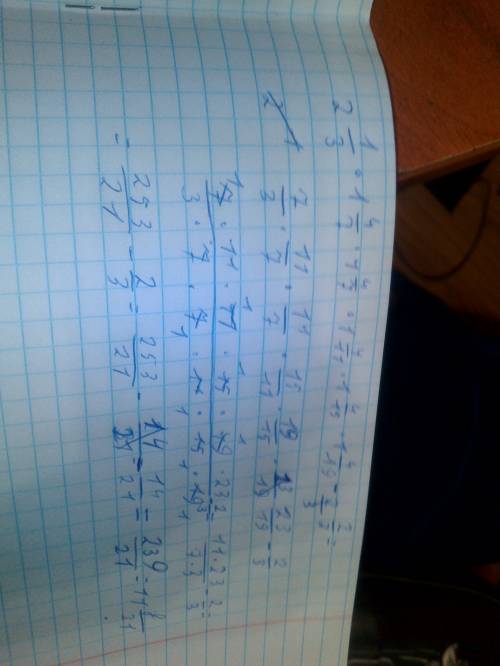 2 1/3 · 1 4/7 · 1 4/7 · 1 4/11 · 1 4/15 · 1 4/19 - 2/3 =
7/3 · 11/7 · 11/7 · 15/11 · 19/15 · 23/19 - 2/3
7 · 11 · 11 · 15 · 19 · 23 / 3 · 7 · 7 · 11 · 15 · 19 - 2/3 = 11 · 23 / 7 · 3 - 2/3 =
= 253/21 - 2/3 = 253/21 - 14/21 = 239/21 = 11 8/21